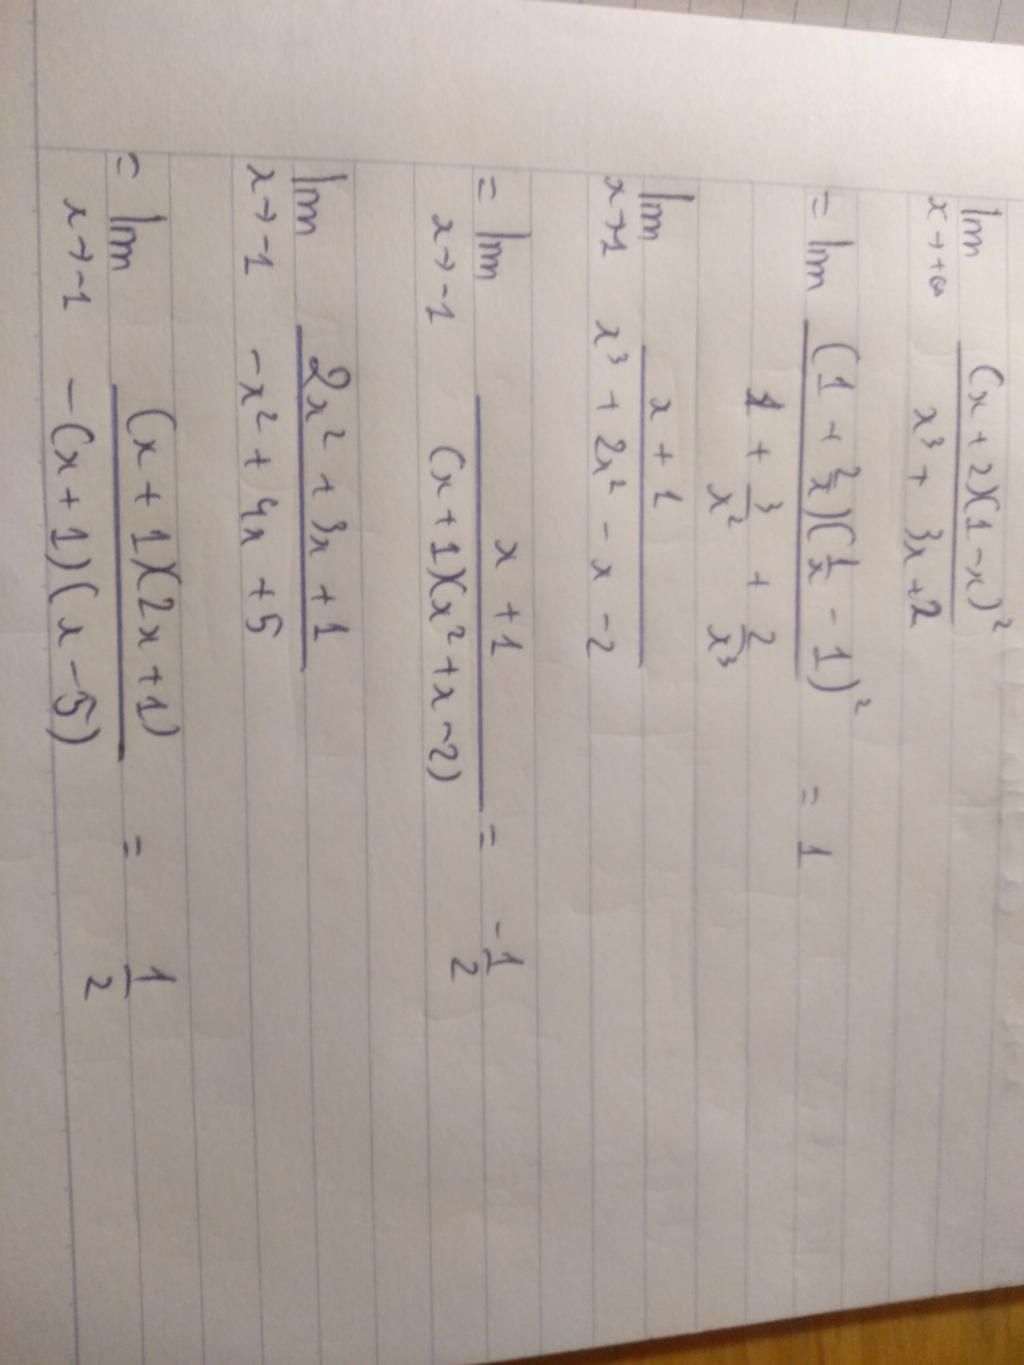 lim (x + 2)(1 - x)²
x → +∞ x³ + 3x + 2
= lim (1 + 2/x)(1/x - 1)² = 1
1 + 3/x² + 2/x³
lim x + 1
x → 1 x³ + 2x² - x - 2
= lim x + 1 = -1/2
x → -1 (x + 1)(x² + x - 2)
lim 2x² + 3x + 1
x → -1 -x² + 4x + 5
= lim (x + 1)(2x + 1) = 1/2
x → -1 -(x + 1)(x - 5)